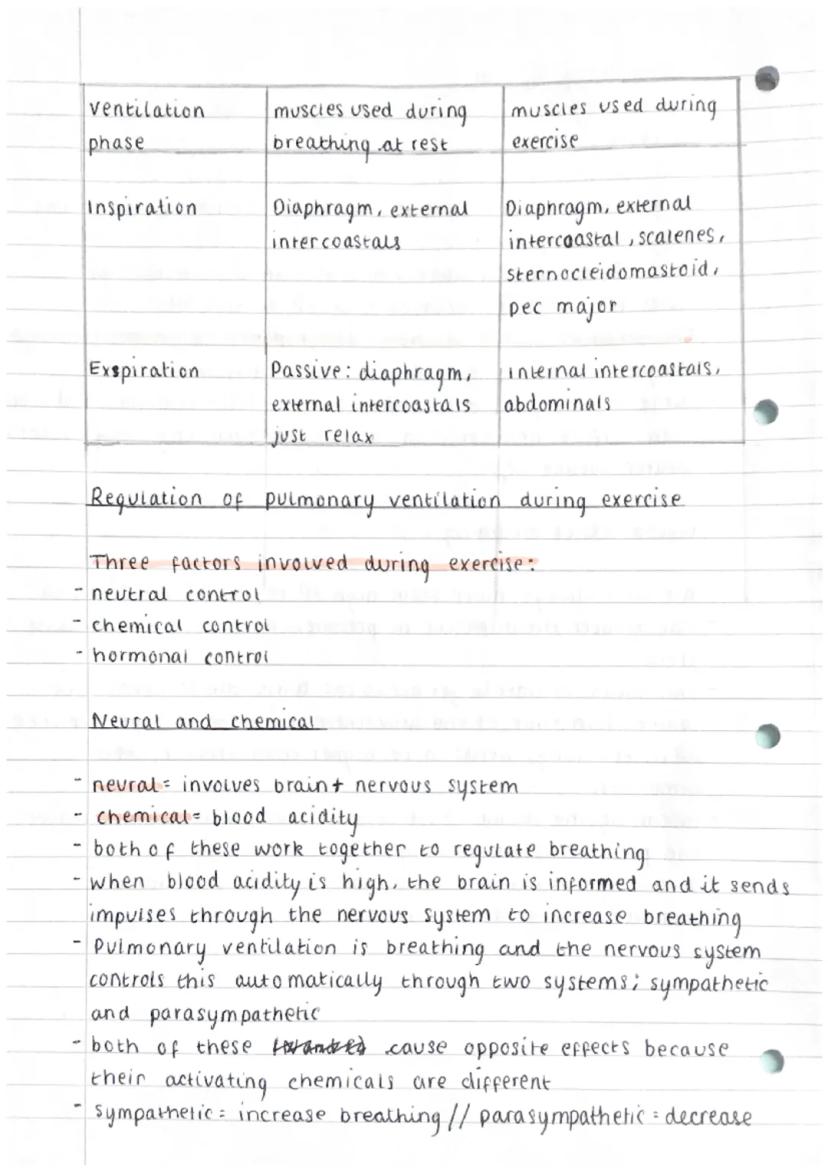 ventilation phase
muscles used during breathing at rest
muscles used during exercise
Inspiration
Diaphragm, external intercoastals
Diaphragm, external intercoastal, scalenes, sternocleidomastoid, pec major
Exspiration
Passive: diaphragm, external intercoastals just relax
internal intercoastals, abdominals
Regulation of pulmonary ventilation during exercise
Three factors involved during exercise:
- neutral control
- chemical control
- hormonal control
Neural and chemical
- neural = involves brain + nervous system
- chemical = blood acidity
- both of these work together to regulate breathing
- when blood acidity is high, the brain is informed and it sends
impulses through the nervous system to increase breathing
- Pulmonary ventilation is breathing and the nervous system
controls this automatically through two systems; sympathetic
and parasympathetic
- both of these cause opposite effects because
their activating chemicals are different
- sympathetic = increase breathing // parasympathetic = decrease